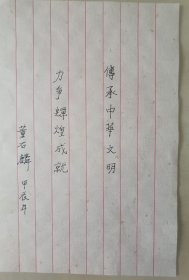 傳承中華文明
力争輝煌成就
董石麟 甲辰年